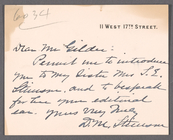 6034
11 WEST 17TH STREET.
Dear Mr Gilder:
Permit me to introduce
you to my sister Mrs. S. E.
Stimson, and to bespeak
for her your editorial
ear. Yours very truly
D. M. Stimson